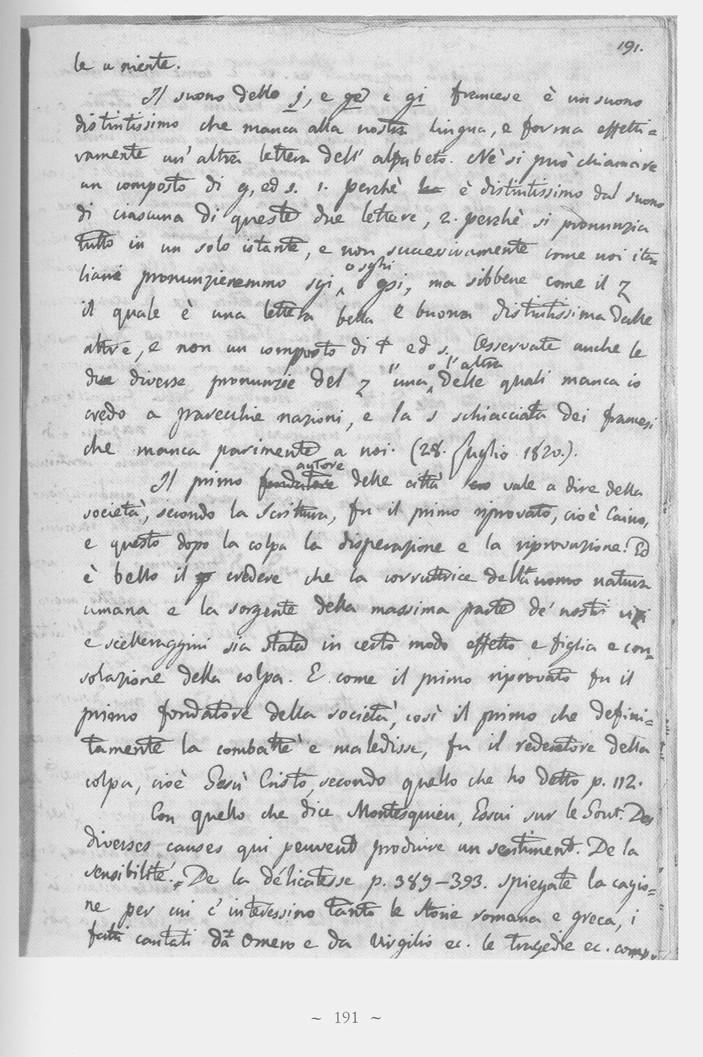 191.
le a niente.
Il suono dello j, e ge e gi francese è un suono
distintissimo che manca alla nostra lingua, e forma effetti=
vamente un' altra lettera dell' alfabeto. Nè si può chiamare
un composto di g, ed s. 1. perchè è distintissimo dal suono
di ciascuna di queste due lettere, 2. perchè si pronunzia
tutto in un solo istante, e non successivamente come noi ita
liani pronunzieremmo sgi, o sghi o gsi, ma sibbene come il z
il quale è una lettera bella e buona distintissima dalle
altre, e non un composto di t ed s. Osservate anche le
due diverse pronunzie del z una o l'altra delle quali manca io
credo a parecchie nazioni, e la s schiacciata dei francesi
che manca parimente a noi. (28. Luglio 1820.).
Il primo fondatore autore delle città vale a dire della
società, secondo la Scrittura, fu il primo riprovato, cioè Caino,
e questo dopo la colpa la disperazione e la riprovazione. Ed
è bello il credere che la corruttrice della natura
umana e la sorgente della massima parte de' nostri vizi
e scelleraggini sia stata in certo modo effetto e figlia e con=
solazione della colpa. E come il primo riprovato fu il
primo fondatore della società, così il primo che defini=
tamente la combattè e maledisse, fu il redentore della
colpa, cioè Gesù Cristo, secondo quello che ho detto p. 112.
Con quello che dice Montesquieu, Essai sur le Gout. Des
diverses causes qui peuvent produire un sentiment. De la
sensibilité. De la délicatesse p. 389-393. spiegate la cagio=
ne per cui c' interessino tanto le storie romana e greca, i
fatti cantati da Omero e da Virgilio ec. le tragedie ec. comp
~ 191 ~